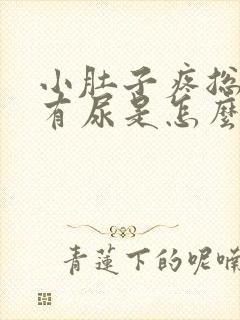 小肚子疼总
有尿是怎么
青莲下的呢喃